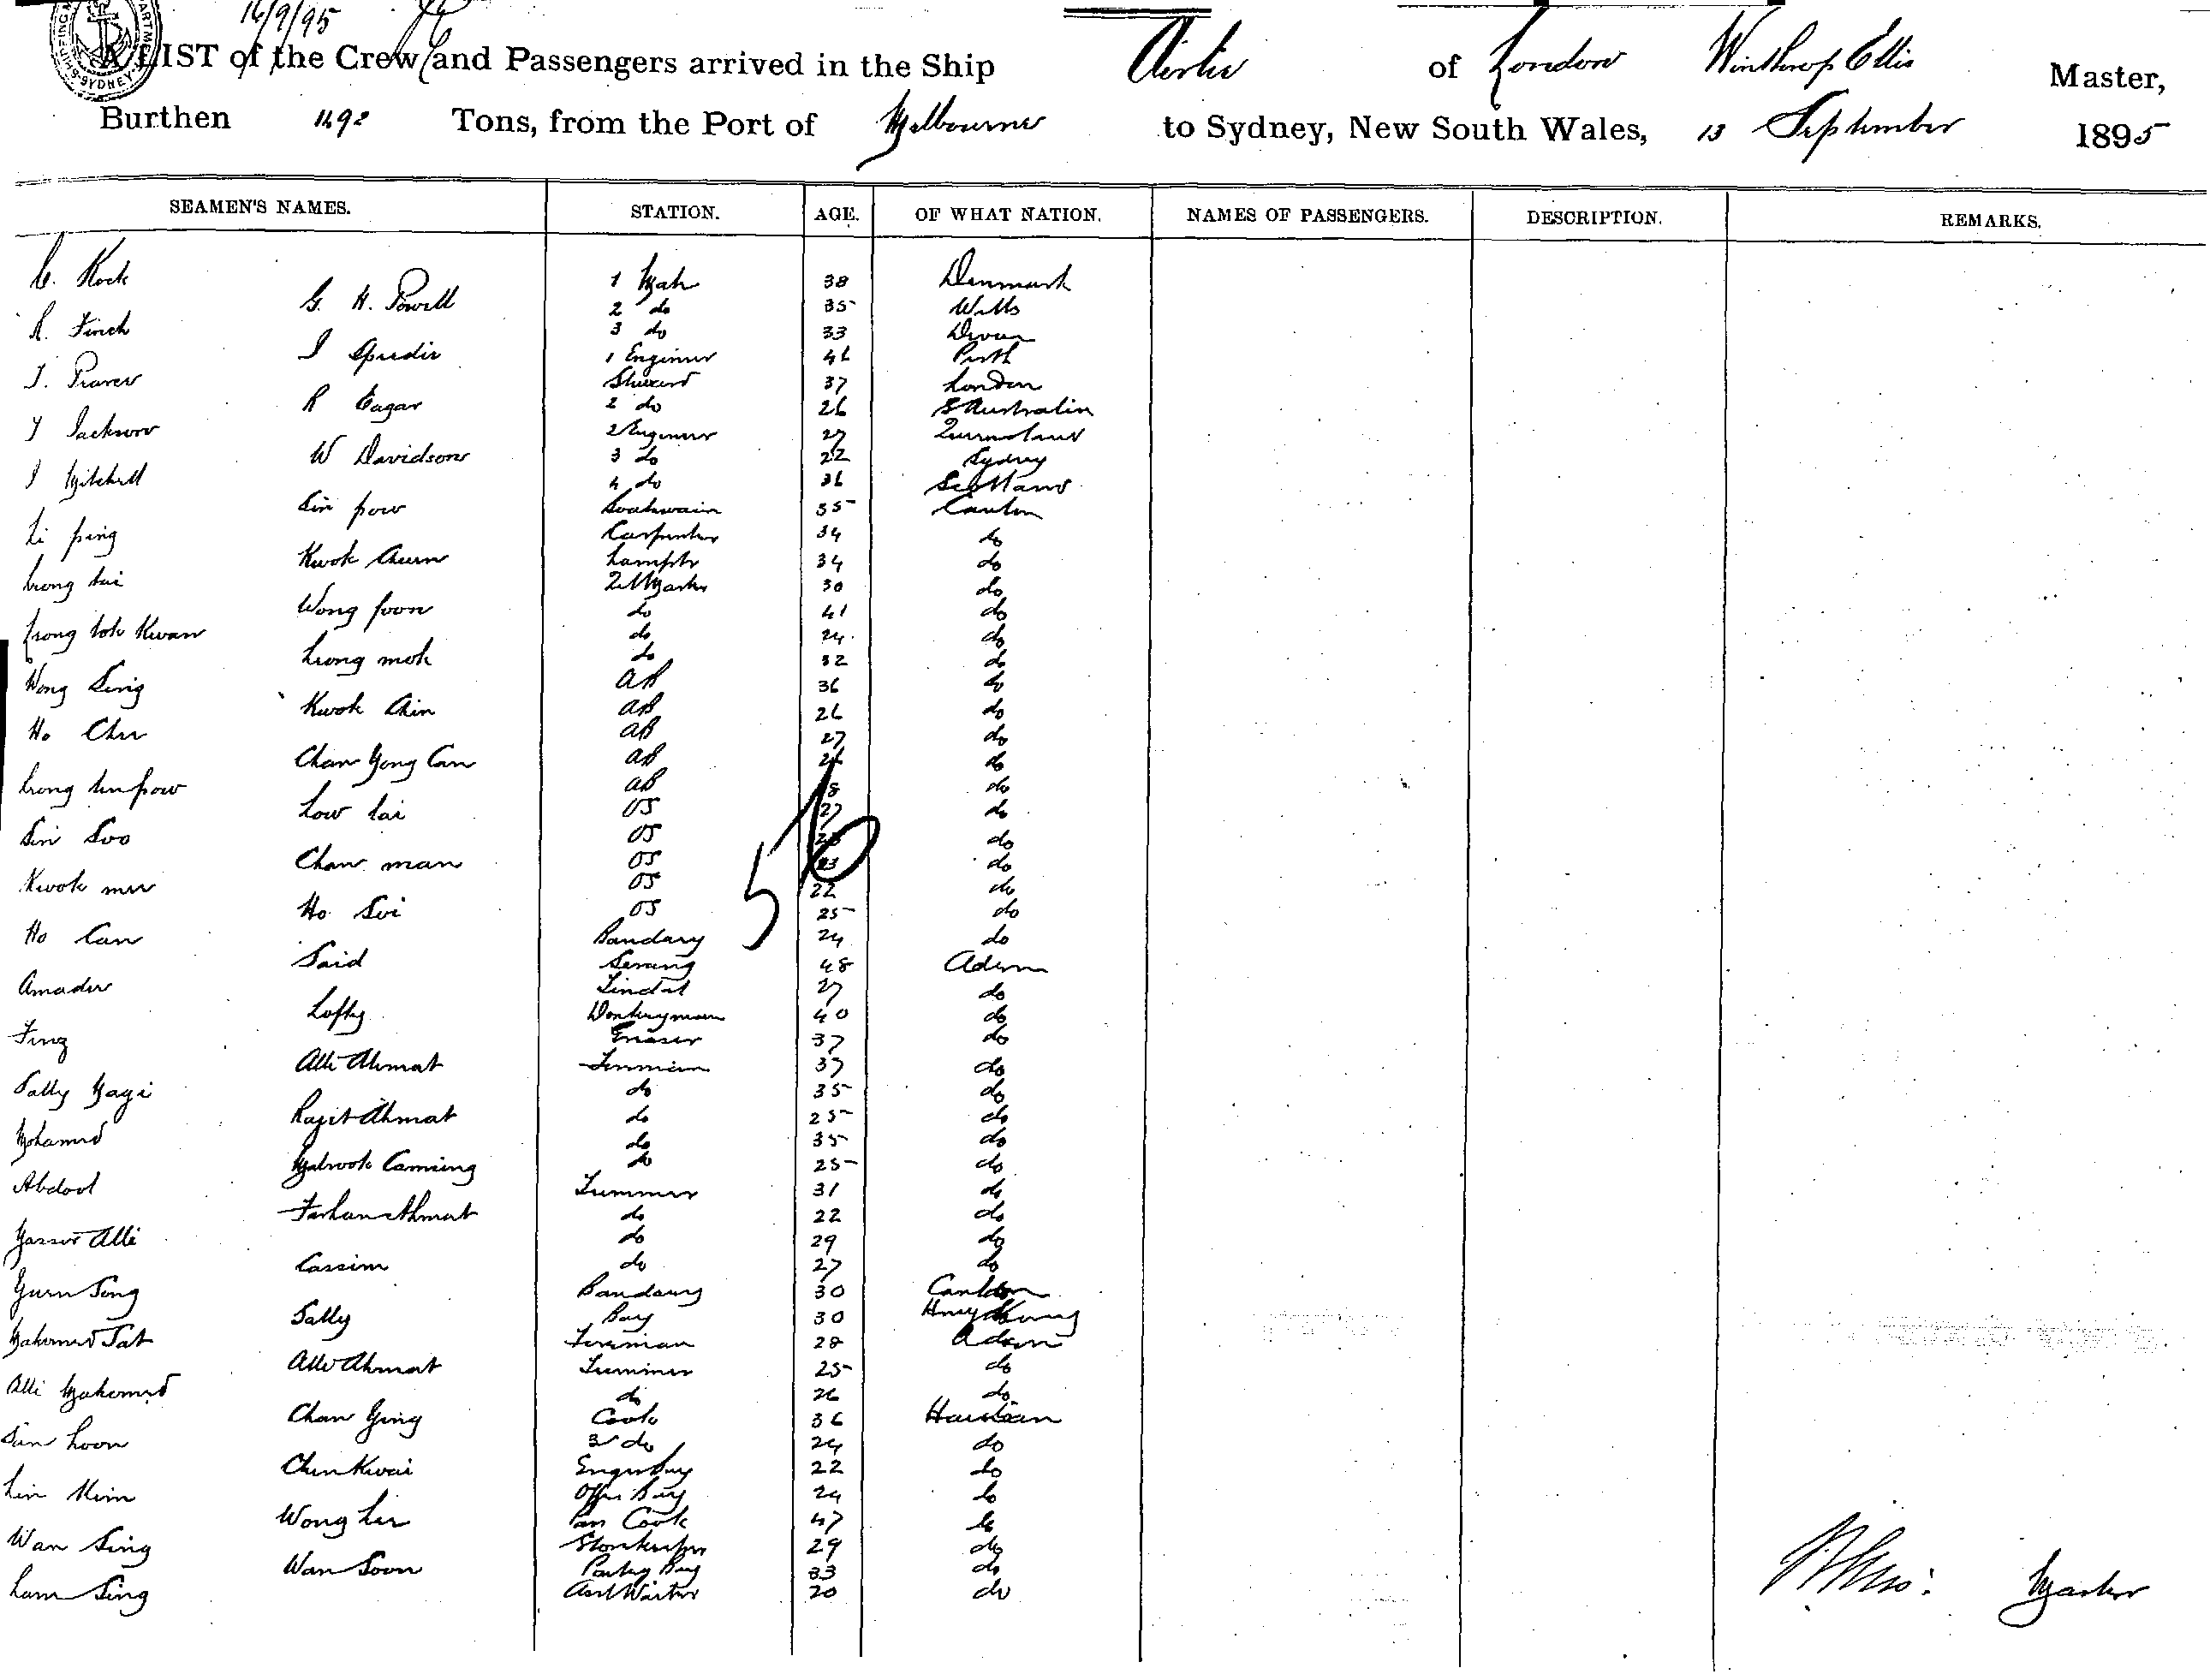 16/9/95
SHIPPING MASTER'S DEPARTMENT SYDNEY
A LIST of the Crew and Passengers arrived in the Ship Airlie of London Winthrop Ellis Master,
Burthen 1492 Tons, from the Port of Melbourne to Sydney, New South Wales, 13 September 1895
SEAMEN'S NAMES. STATION. AGE. OF WHAT NATION. NAMES OF PASSENGERS. DESCRIPTION. REMARKS.
C. Kock 1 Mate 38 Denmark
G. H. Powell 2 do 35 Wilts
R. Finch 3 do 33 Devon
J Speedie 1 Engineer 46 Perth
J. Steward 37 London
R Eagar 2 do 26 S Australia
J Jackson 2 Engineer 27 Queensland
W Davidson 3 do 22 Sydney
J Mitchell 4 do 36 Scotland
Sin pow Boatswain 35 Canton
Li ping Carpenter 34 do
Kwok Chuen Lamptr 34 do
Leong tai 2r Master 30 do
Wong foon do 41 do
Kwan do 24 do
Leong mok do 32 do
Wong Sing AB 36 do
Kwok Chin AB 26 do
Ho Chee AB 27 do
Chan Yong Can AB 26 do
Leong pow AB 8 do
Low tai OS 27 do
Sin Soo OS do
Chan man OS 23 do
Kwok mee OS 22 do
Ho Sui OS 25 do
Ho Can Bandary 24 do
Said Serang 48 Aden
Amader Tindal 27 do
Lofty Donkeyman 40 do
Greaser 37 do
Alli Ahmat Fireman 37 do
Sally do 35 do
Rajit Ahmat do 25 do
Mohamed do 35 do
Mabrook Camsing do 25 do
Abdool Trimmer 31 do
Farhan Ahmat do 22 do
Alli do 29 do
Cassim do 27 do
Yuen Song Bandary 30 Canton
Sally Boy 30 Hong Kong
Mahomed Fireman 28 Aden
Alli Ahmat Trimmer 25 do
Alli Mahomed do 26 do
Chan Ying Cook 36
Sun Loon 3 do 24 do
Chen Kwai Engrs boy 22 do
Lin Offrs Boy 24 do
Wong Lee Cook 47 do
Wan Sing Storekeeper 29 do
Wan Soon Pantry Boy 33 do
Lam Sing Asst Waiter 20 do
56
Master